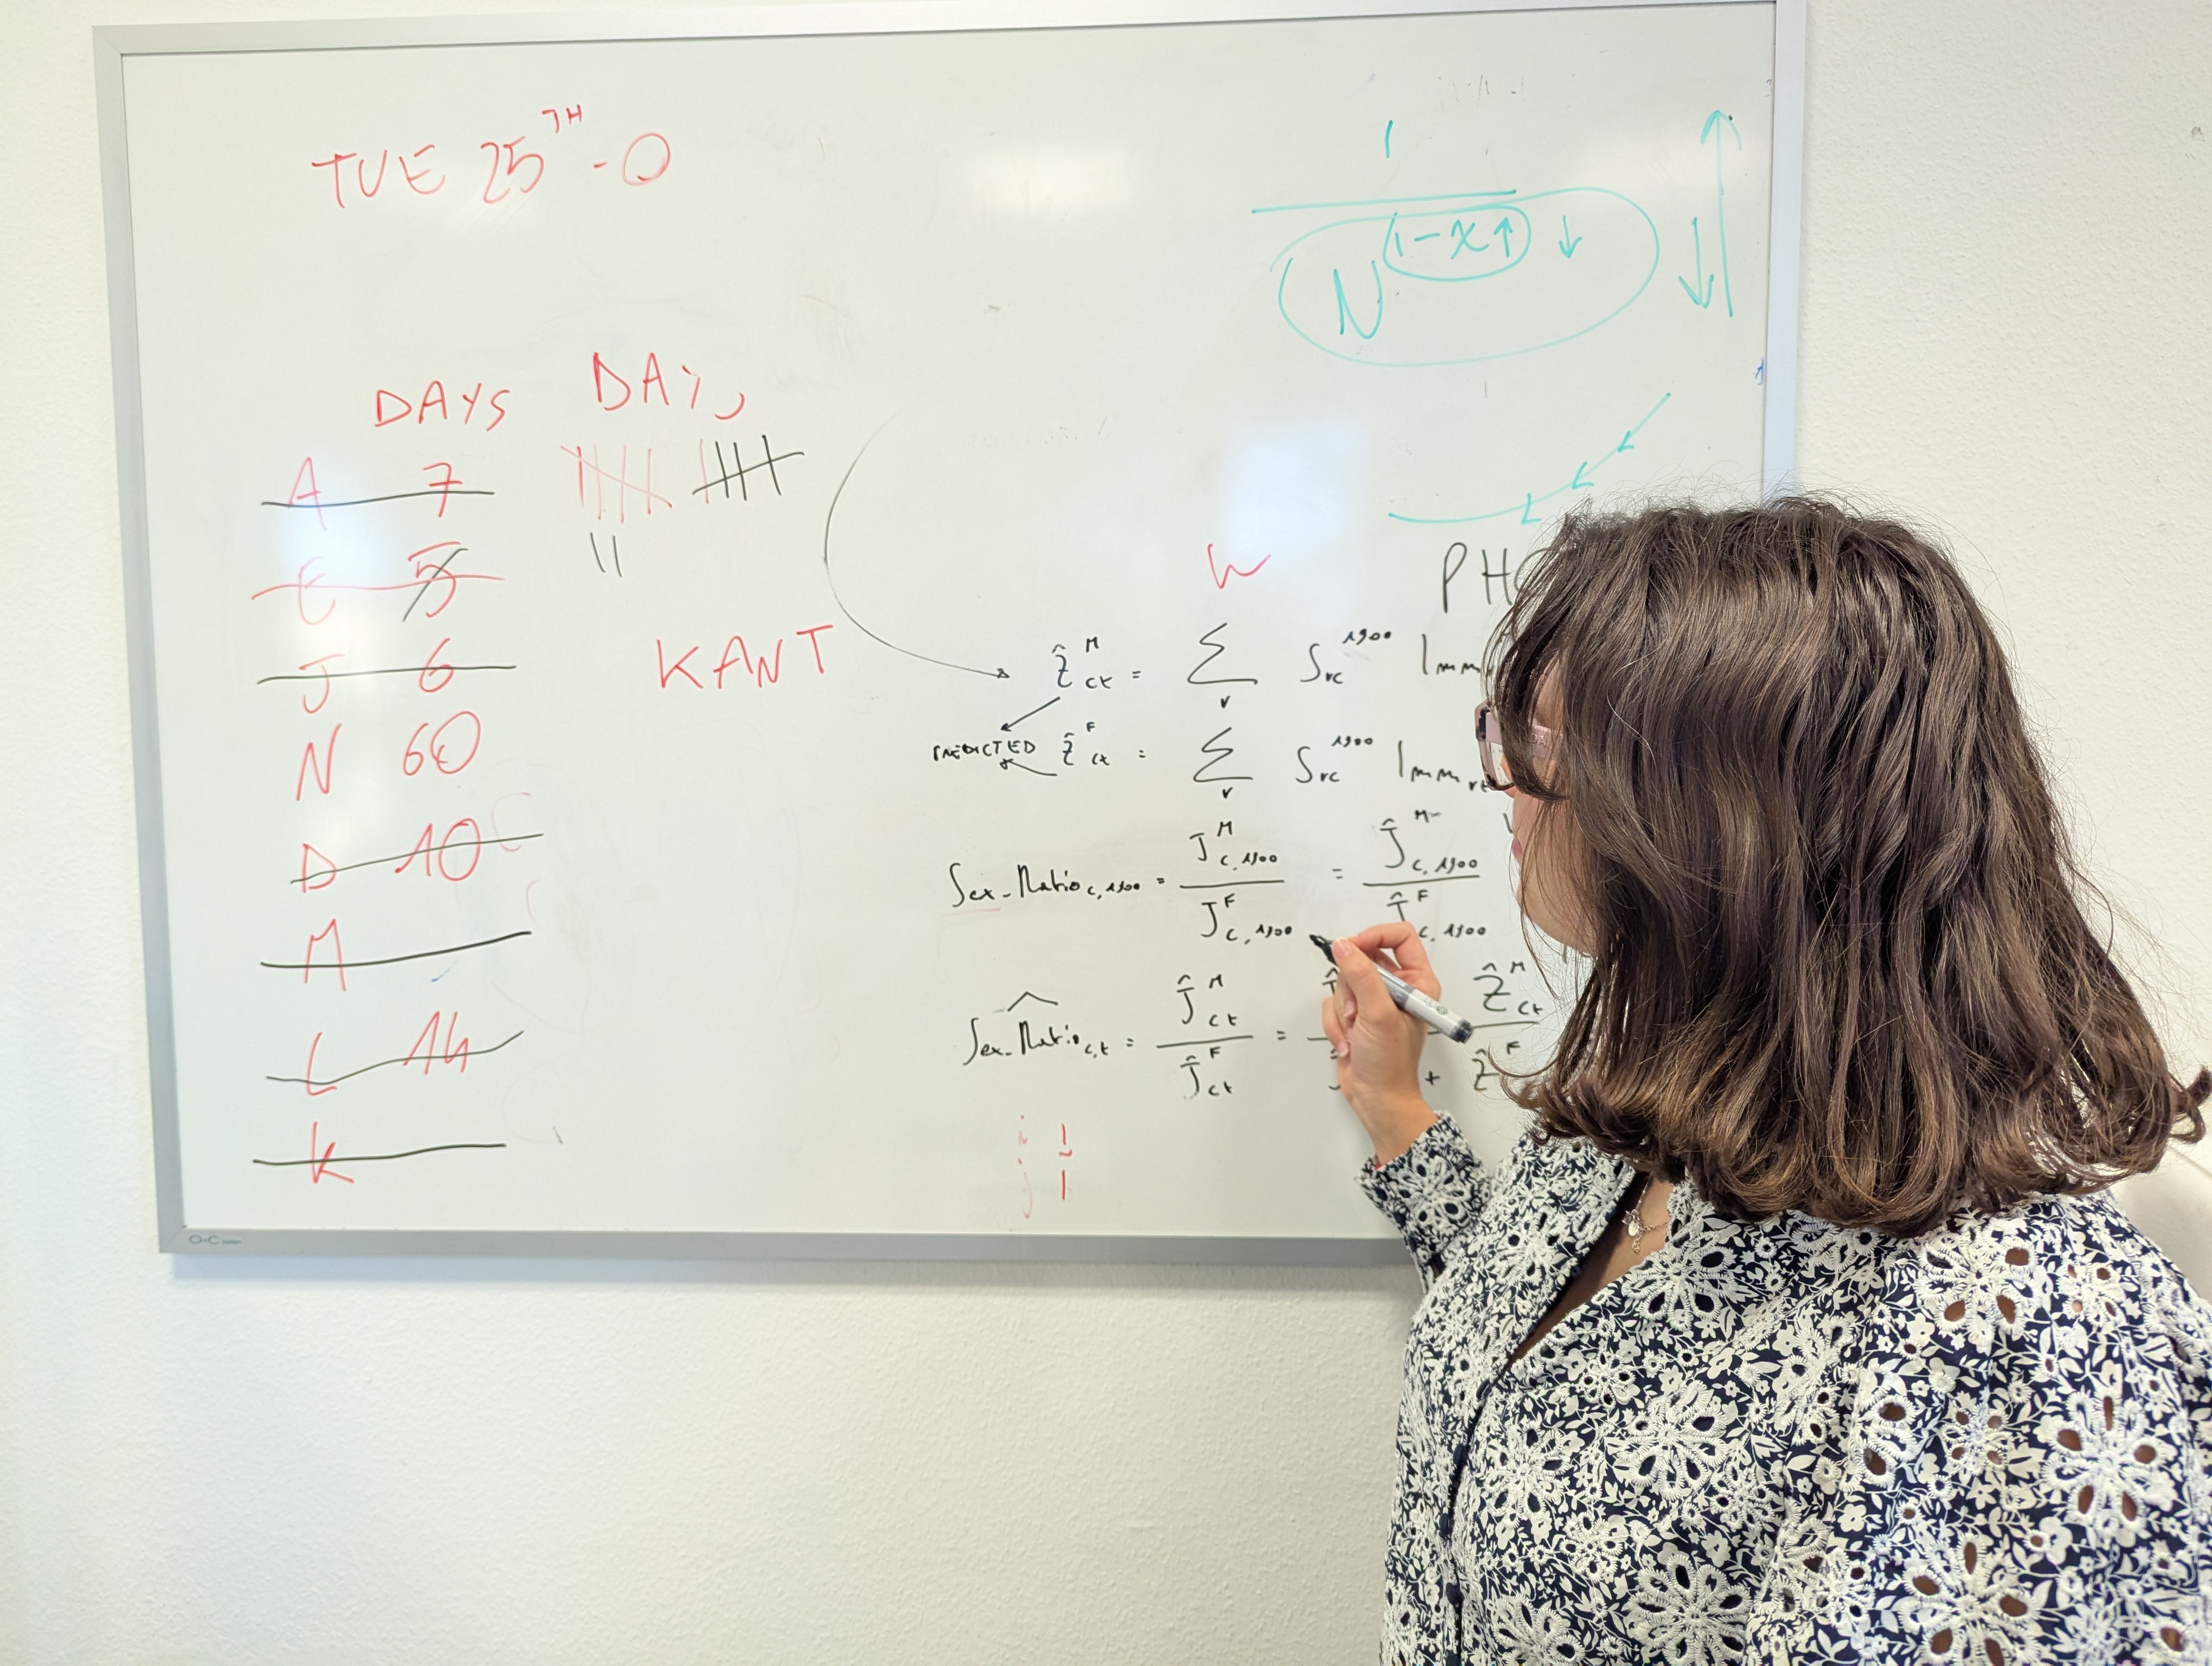 TUE 25TH - 0
1
N 1-x↑ ↓
DAYS DAYS
A 7
C 5
J 6
N 60
D 10
M
L 14
K
KANT
W
Ẑ^M_ct = Σ_r S_rc^1900 Imm
PREDICTED Ẑ^F_ct = Σ_r S_rc^1900 Imm_rt
Sex-Ratio_c,1900 = J^M_c,1900 / J^F_c,1900 = Ĵ^M_c,1900 / Ĵ^F_c,1900
Sex-Ratio_c,t = Ĵ^M_ct / Ĵ^F_ct = Ẑ^M_ct / + Ẑ^F